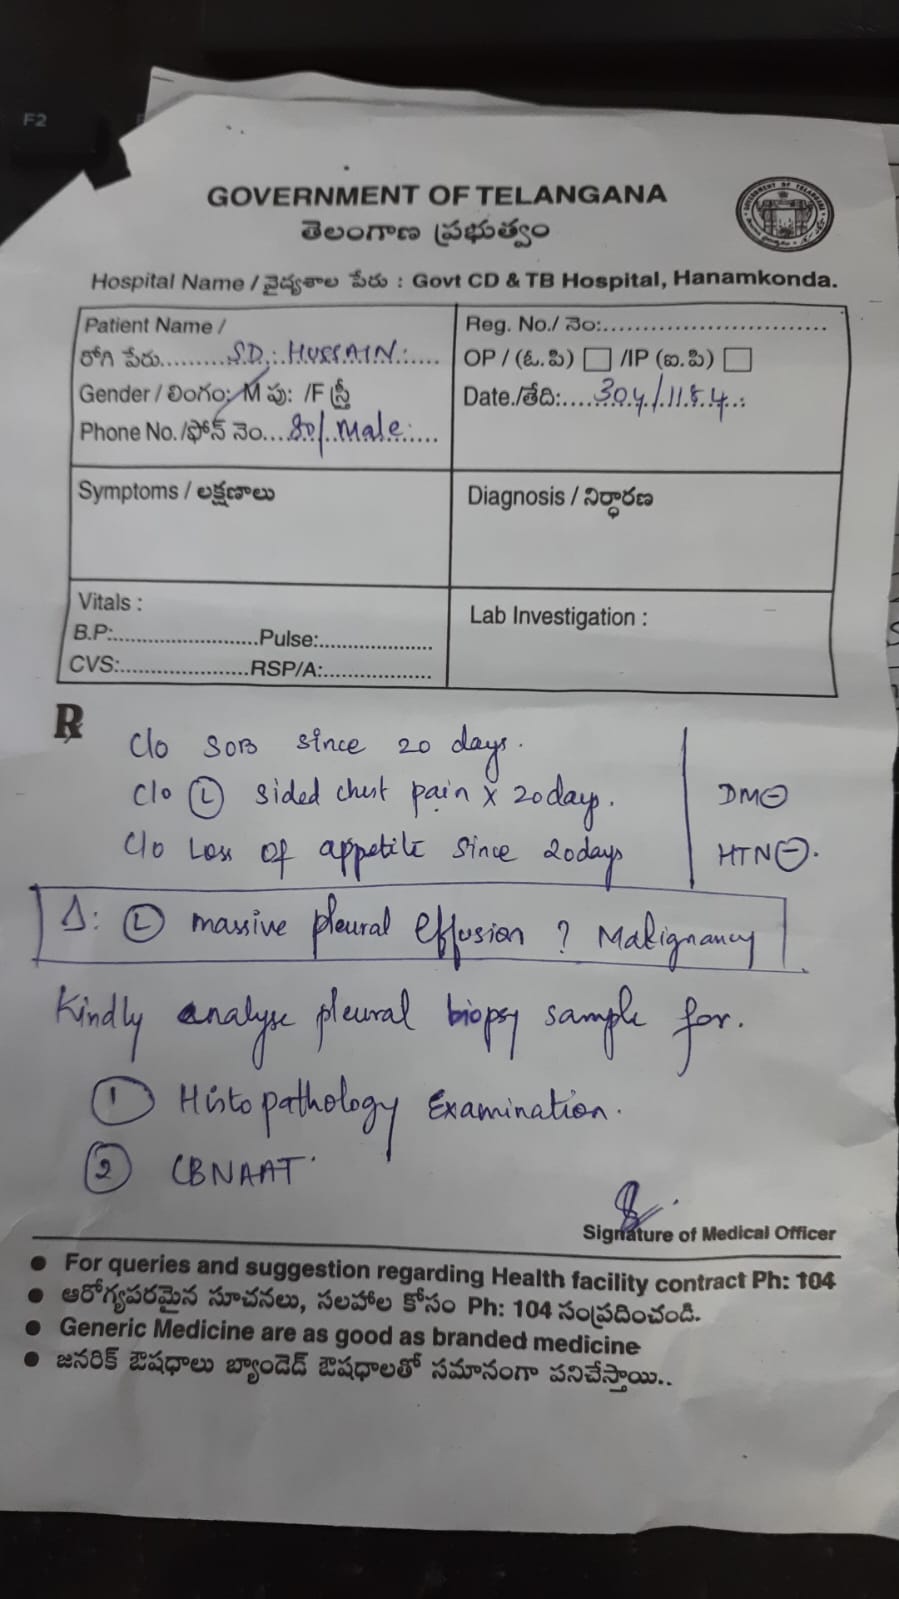 F2
GOVERNMENT OF TELANGANA
తెలంగాణ ప్రభుత్వం
Hospital Name / వైద్యశాల పేరు : Govt CD & TB Hospital, Hanamkonda.
Patient Name /
రోగి పేరు.........SD. HUSSAIN.....
Gender / లింగం: M పు: /F స్త్రీ
Phone No. /ఫోన్ నెం....80/ Male......
Reg. No./ నెం:..............................
OP / (ఓ.పి) /IP (ఐ.పి)
Date./తేది:.....304/1184..
Symptoms / లక్షణాలు
Diagnosis / నిర్ధారణ
Vitals :
B.P:.........................Pulse:....................
CVS:......................RSP/A:...................
Lab Investigation :
R
C/o SOB since 20 days.
C/o (L) sided chest pain x 20days.
C/o Loss of appetite since 20days
DM⊖
HTN⊖.
Δ: (L) massive pleural effusion ? Malignancy
Kindly analyse pleural biopsy sample for.
① Histopathology Examination.
② CBNAAT.
Signature of Medical Officer
● For queries and suggestion regarding Health facility contract Ph: 104
● ఆరోగ్యపరమైన సూచనలు, సలహాల కోసం Ph: 104 సంప్రదించండి.
● Generic Medicine are as good as branded medicine
● జనరిక్ ఔషధాలు బ్యాండెడ్ ఔషధాలతో సమానంగా పనిచేస్తాయి..